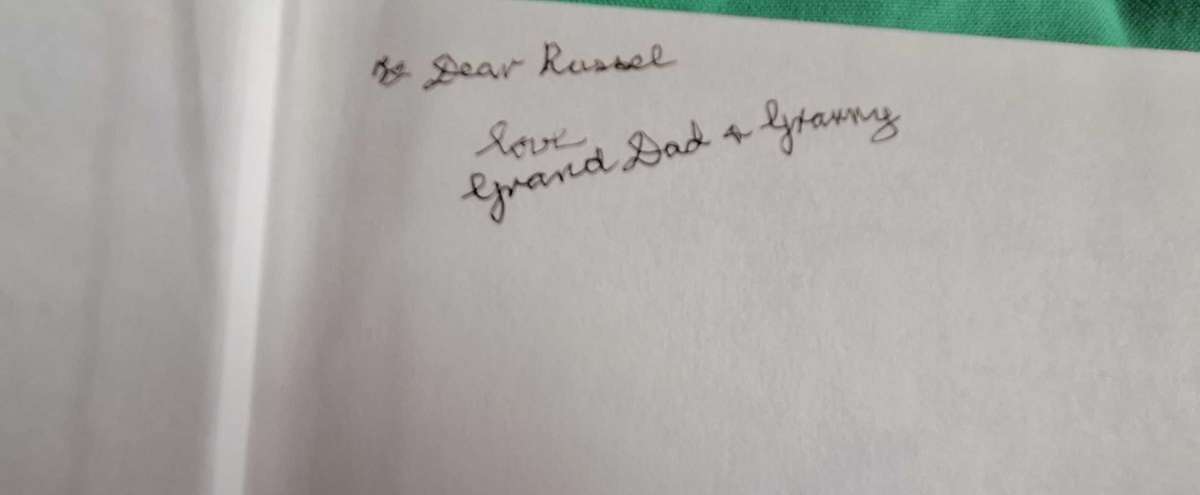 To Dear Russel
love
Grand Dad & Granny